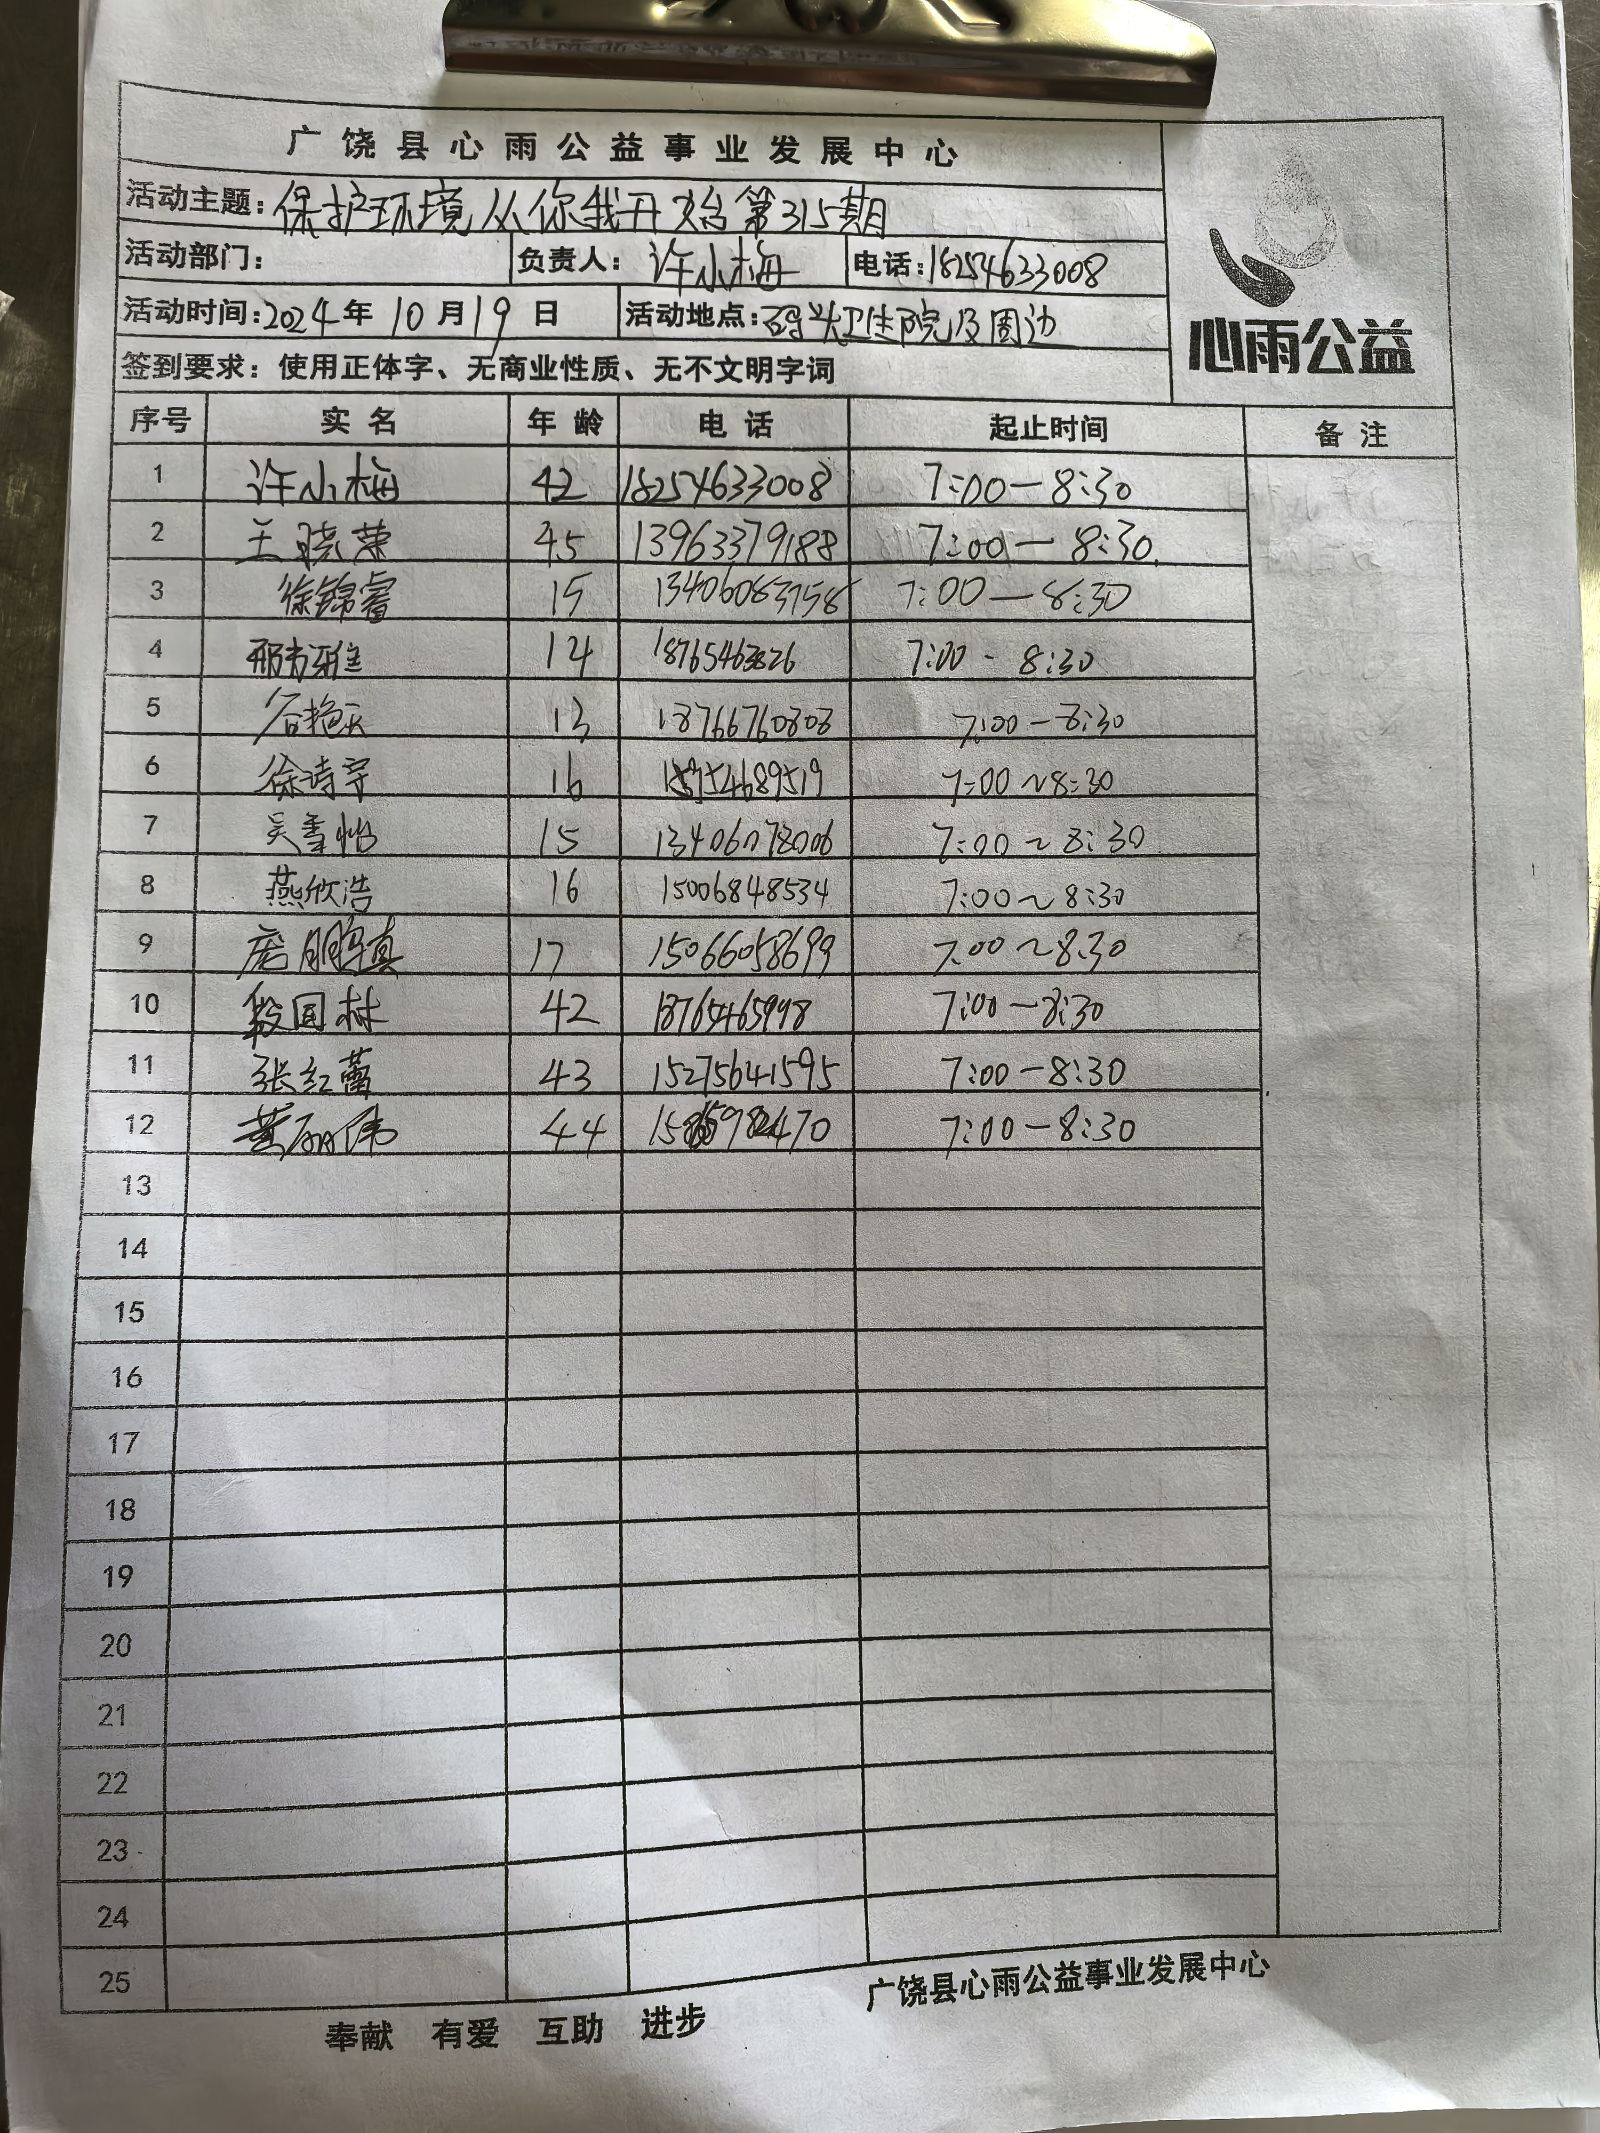 广饶县心雨公益事业发展中心
活动主题：保护环境从你我开始第315期
活动部门： 负责人：许小梅 电话：18254633008
活动时间：2024年10月19日 活动地点：码头卫生院及周边
心雨公益
签到要求：使用正体字、无商业性质、无不文明字词
序号 实名 年龄 电话 起止时间 备注
1 许小梅 42 18254633008 7:00—8:30
2 王晓荣 45 13963379188 7:00—8:30.
3 徐锦睿 15 13406083758 7:00—8:30
4 14 18765463826 7:00-8:30
5 13 18766760808 7:00-8:30
6 徐诗宇 16 7:00~8:30
7 吴雪怡 15 13406078006 7:00~8:30
8 燕欣浩 16 15006848534 7:00~8:30
9 17 15066058699 7:00~8:30
10 段国林 42 18765465998 7:00-8:30
11 张红蕾 43 15275641595 7:00-8:30
12 黄丽伟 44 7:00-8:30
13
14
15
16
17
18
19
20
21
22
23
24
25
广饶县心雨公益事业发展中心
奉献 有爱 互助 进步